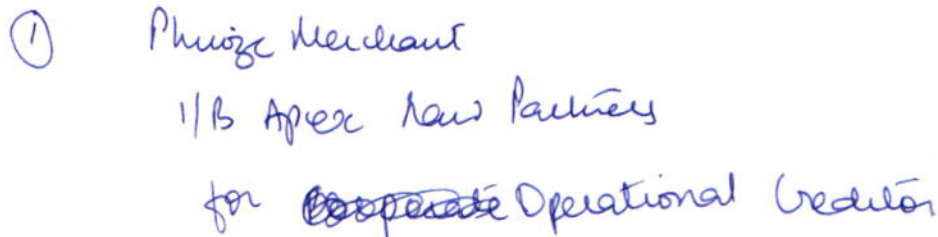 ① Phiroze Merchant
i/B Apex Law Partners
for Operational Creditor